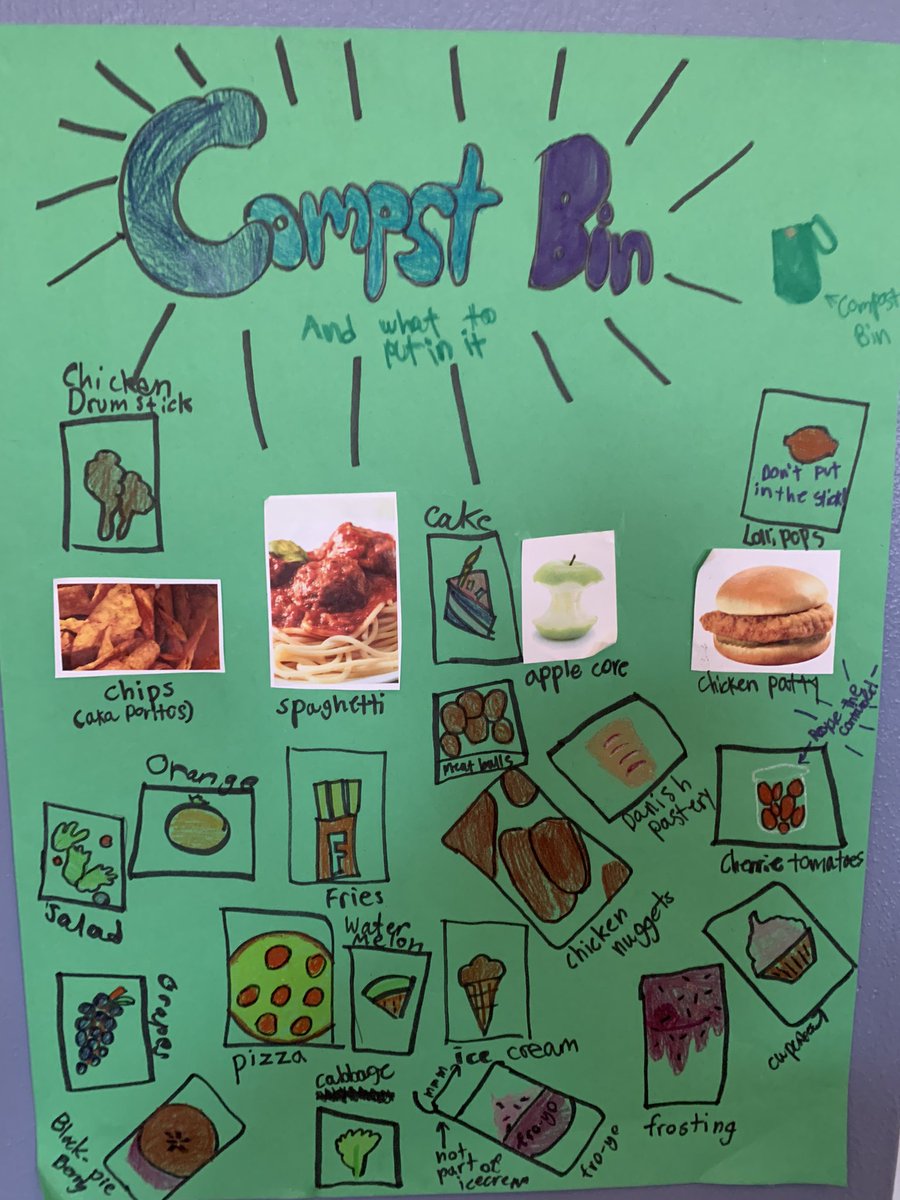 Compst Bin
And what to
put in it
Compost
Bin
Chicken
Drum stick
Don't put
in the stick!
Lollipops
cake
apple core
chicken patty
chips
(aka Doritos)
spaghetti
meat balls
Danish
pastery
the
container!
Cherrie tomatoes
Orange
Salad
Fries
chicken
nuggets
Water
melon
Grapes
pizza
ice cream
cupcake
frosting
cabbage
mmm
fro-yo
fro-yo
not
part of
icecrem
Black-
Berry
pie